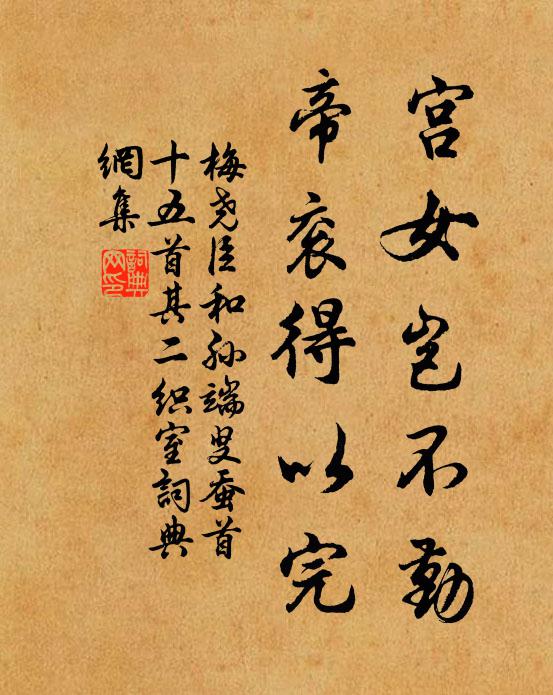 宫女岂不勤
帝衮得以完
梅尧臣和孙端叟蚕首
十五首其二织室詞典
網集
詞典網印